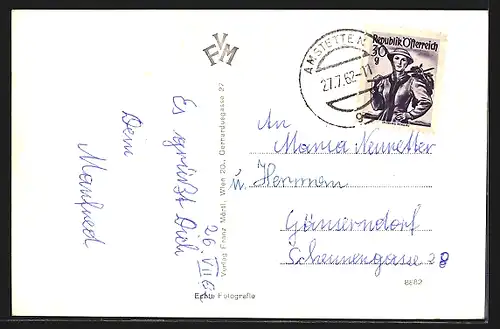 Es grüßt Dich
Dein
Manfred
26. VII 62
VFM
Verlag Franz Mörtl, Wien 20., Gerhardusgasse 27
Echte Fotografie
AMSTETTEN
27.7.62-11
g
Republik Österreich
30
g
An
Maria Neunetter
u. Herrman
Gänserndorf
Scheunengasse 28
8882